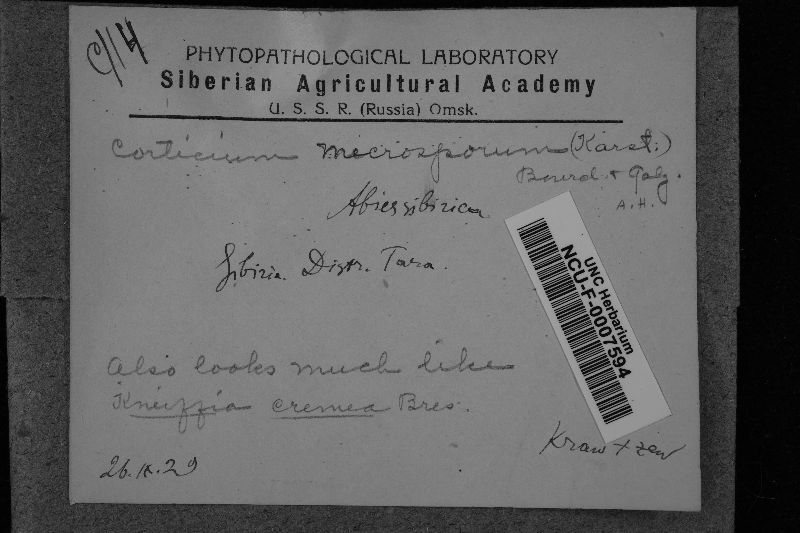 C/14
PHYTOPATHOLOGICAL LABORATORY
Siberian Agricultural Academy
U. S. S. R. (Russia) Omsk.
Corticium microsporum (Karst.)
Bourd. + Galz.
A.H.
Abies sibirica
Sibiria. Distr. Tara.
UNC Herbarium
NCU-F-0007594
Also looks much like
Kneiffia cremea Bres.
Krawtzew
26.IX.29